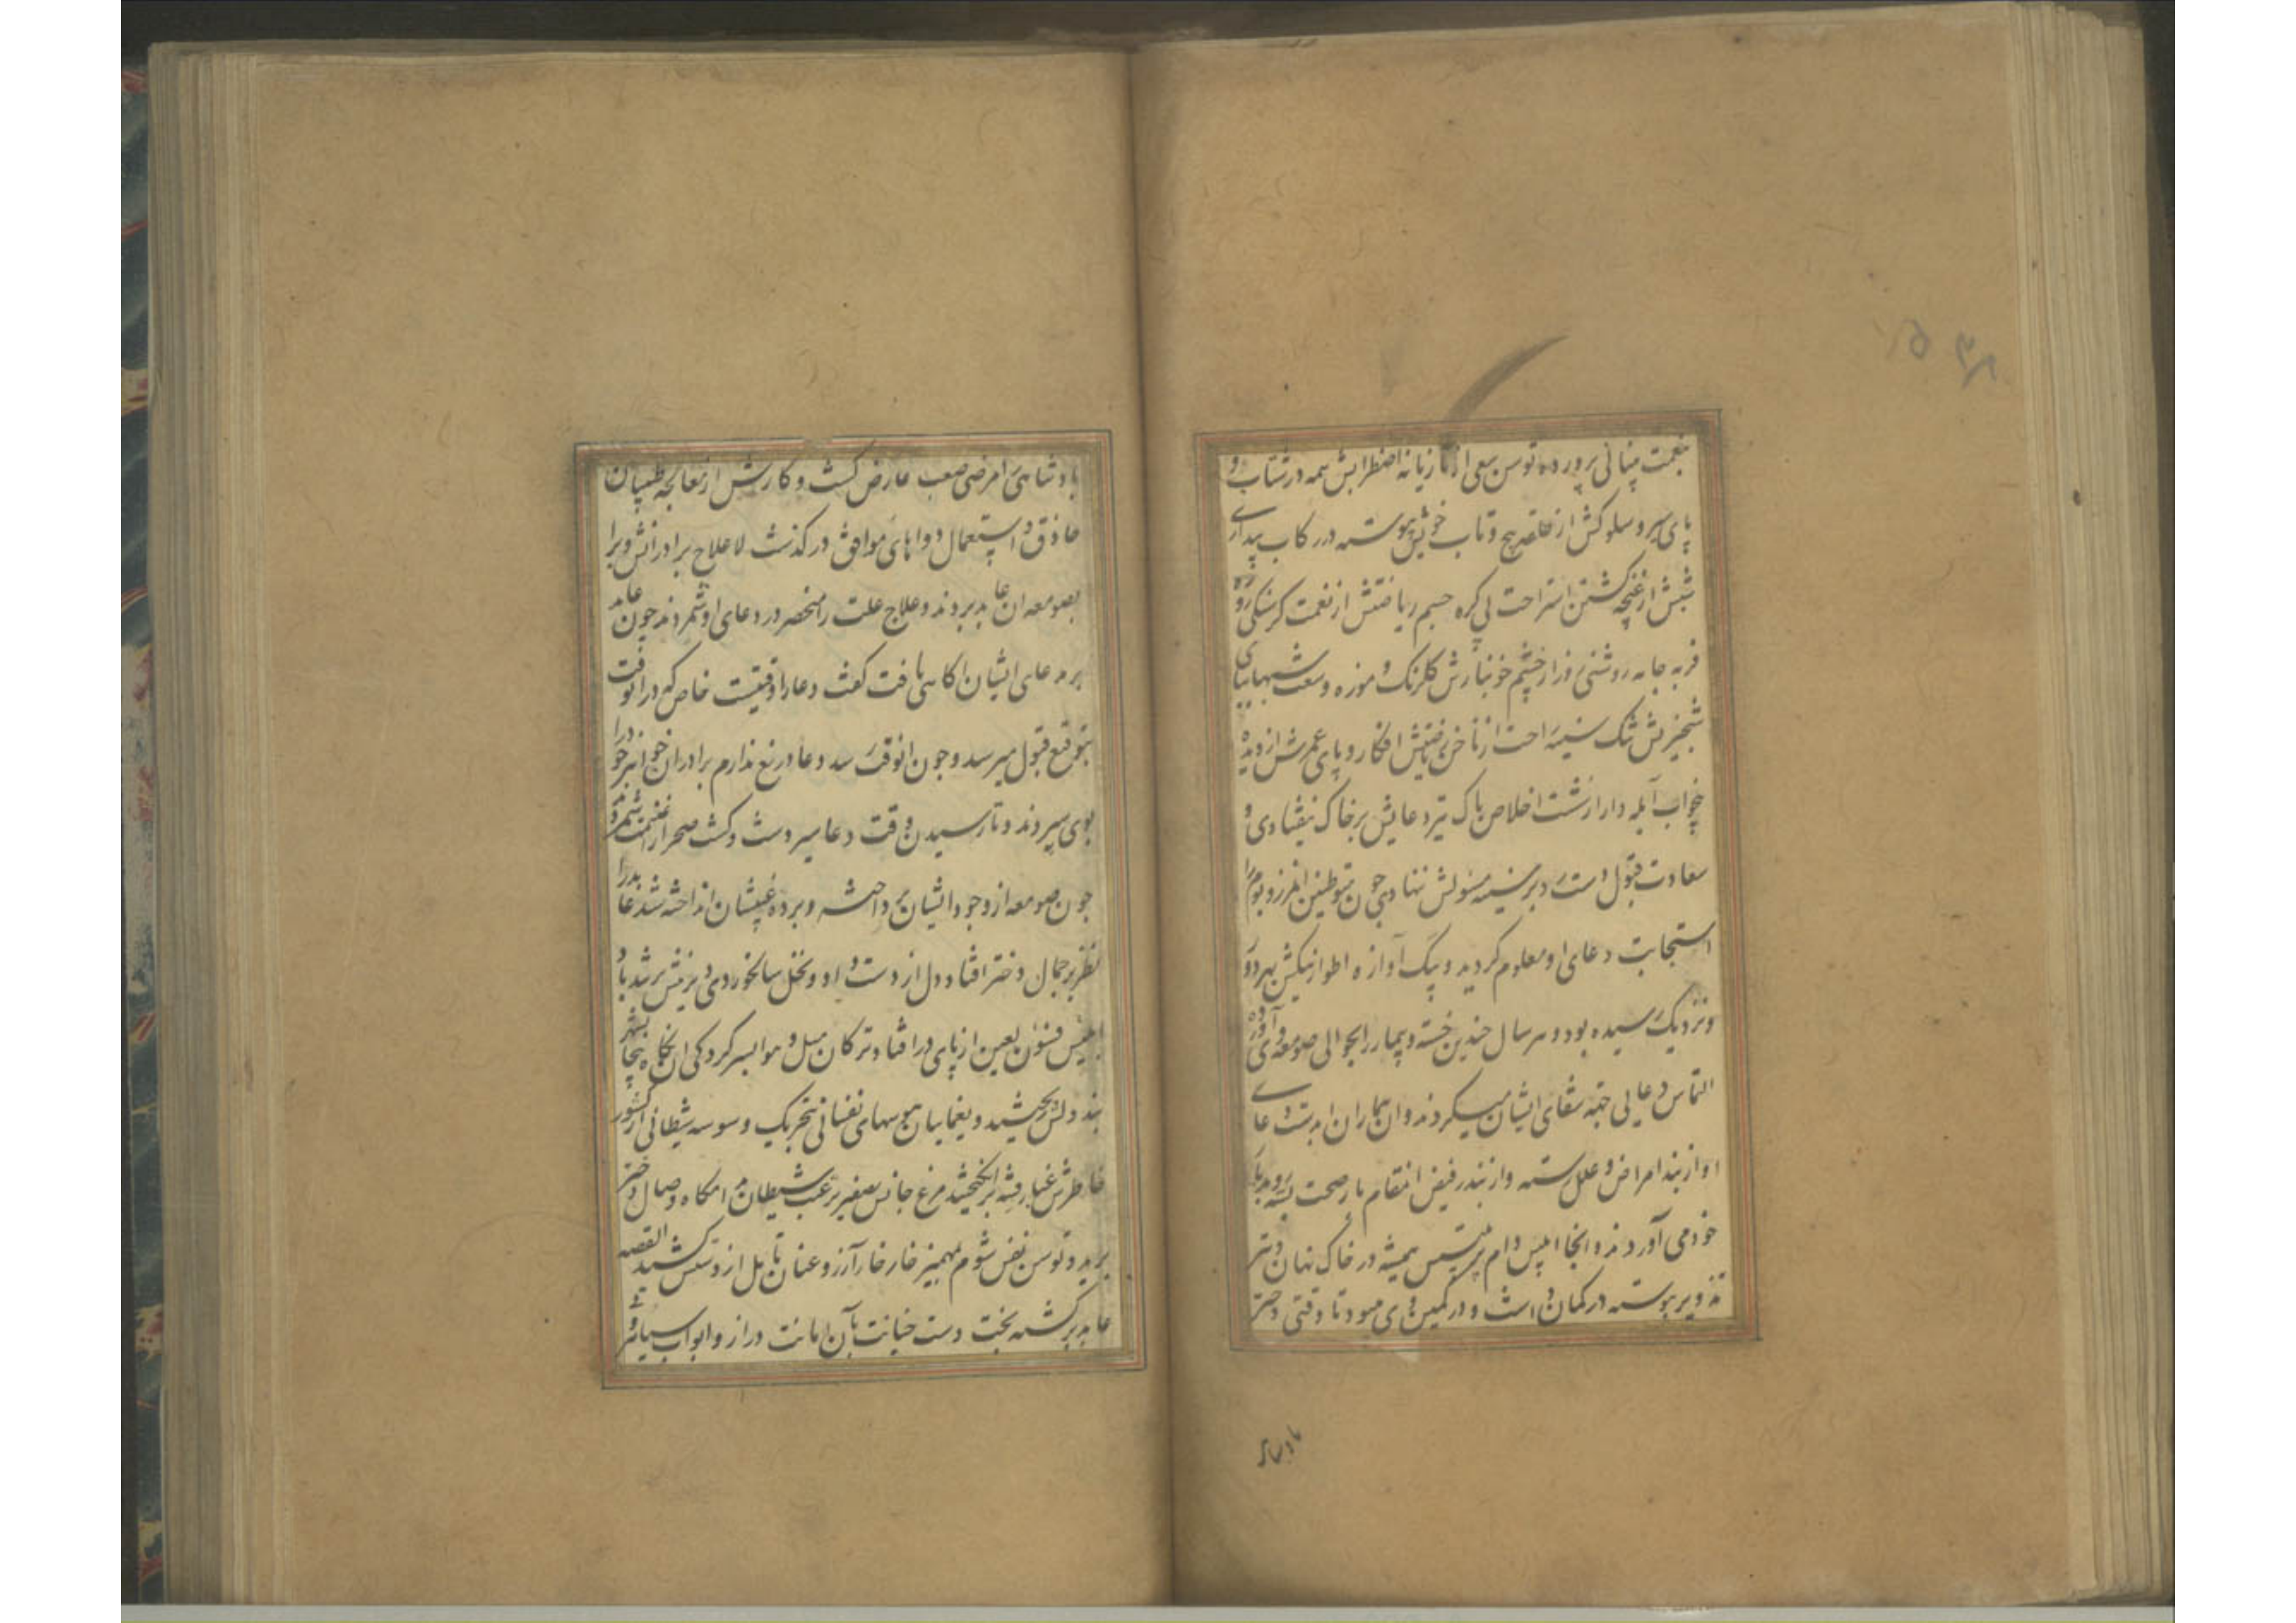 بنعمت پنهانی پرورده توسن سعی از تازیانه اضطرابش همه در شتاب و
پای سیر و سلوکش از حلقه پیچ و تاب خویش پیوسته در رکاب بیداری
شبش از غنچه گشتن استراحت بی کره جسم ریاضتش از نعمت کرسنکی روزه
فربه جامه روشنی روز از چشم خونبارش کلرنک و موزه وسعت شبها بپای
شبخیزیش تنک سینه راحت از ناخن ریاضتش افکار و پای عمرش از دیده
بخواب آبله دار از شست اخلاص پاک تیر دعایش بر خاک نیفتادی و
سعادت قبول دست رد بر سینه مسئولش ننهادی چون متوطنین انمرز و بوم را
استجابت دعای او معلوم کردید و پیک آوازه اطوار نیکش بهر دور
و نزدیک رسیده بود و هر سال چندین خسته و بیمار را بحوالی صومعه وی آورده
التماس دعایی جهة شفای ایشان میکردند و ان بیماران بمدت دعای
او از بند امراض و علل رسته و از بندر فیض انتقام بار صحت بسته رو بدیار
خود می آوردند و انجا ابلیس دام تلبیس همیشه در خاک نهان و تیر
تزویر پیوسته در کمان داشت و در کمین وی میبود تا وقتی دختر
پادشاهی
پادشاهی را مرضی صعب عارض کشت و کارش از معالجه طبیبان
حاذق و استعمال دواهای موافق در کذشت لا علاج برادرانش ویرا
بصومعه ان عابد بردند و علاج علت را منحصر در دعای او شمردند چون عابد
بر مدعای ایشان اکاهی یافت کفت دعا را وقتیست خاص که در انوقت
بتوقع قبول میرسد و چون انوقت رسد دعا دریغ ندارم برادران خواهر خود را
بوی سپردند و تا رسیدن وقت دعا سیر دشت و کشت صحرا را غنیمت شمردند
چون صومعه از وجود ایشان پرداخته و پرده غیبتشان انداخته شد عابد را
نظر بر جمال دختر افتاد و دل از دست داد و نخل سالخورد دی
ابلیس فنون لعین از پای در افتاد و ترکان میل و هوا بسر کردکی ان نکاه بیجا بشهر
بند دلش بجهشید و یغماییان هوسهای نفسانی بتحریک وسوسه شیطانی از کشور
خاطرش غبار فتنه برانکیختند مرغ جانش بصفیر رغبت شیطان بدامکاه وصال دختر
پرید و توسن نفس شوم بمهمیز خارخار آرزو عنان تامل از دستش کشید القصه
عابد برکشته بخت دست خیانت بآن امانت دراز و ابواب سیاه